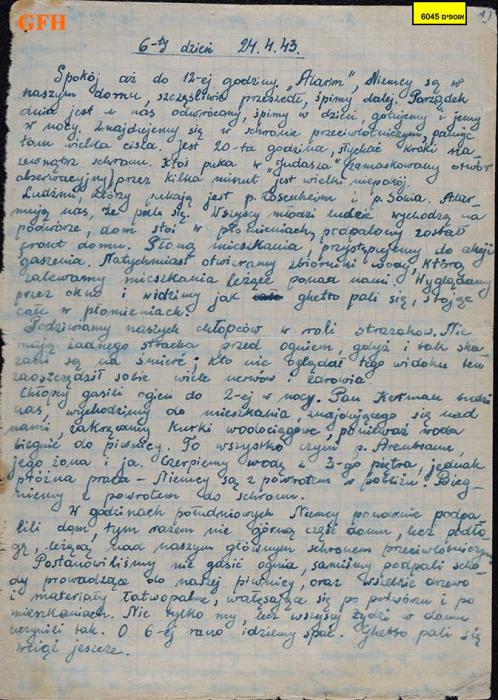 GFH
אוספים 6045
1)
6-ty dzień 24.4.43.
Spokój aż do 12-ej godziny, „Alarm", Niemcy są w
naszym domu, szczęśliwie przeszedł, śpimy dalej. Porządek
dnia jest u nas odwrócony, śpimy w dzień, gotujemy i jemy
w nocy. Znajdujemy się w schronie przeciwlotniczym, panuje
tam wielka cisza. Jest 20-ta godzina, słychać kroki na
zewnątrz schronu. Ktoś puka w „judasza" (zamaskowany otwór
obserwacyjny) przez kilka minut jest wielki niepokój.
Ludźmi, którzy pukają jest p. Rosenheim i p. Sonia. Alar-
mują nas, że pali się. Wszyscy młodzi ludzie wychodzą na
podwórze, dom stoi w płomieniach, podpalony został
front domu. Płoną mieszkania, przystępujemy do akcji
gaszenia. Natychmiast otwieramy zbiorniki wody, którą
zalewamy mieszkania leżące ponad nami. Wyglądamy
przez okno i widzimy jak ghetto pali się, stojąc
całe w płomieniach.
Podziwiamy naszych chłopców w roli strażaków. Nie
mają żadnego strachu przed ogniem, gdyż i tak ska-
zani są na śmierć; kto nie oglądał tego widoku ten
zaoszczędził sobie wiele nerwów i zdrowia.
Chłopcy gasili ogień do 2-ej w nocy. Pan Kerman budzi
nas, wychodzimy do mieszkania, znajdującego się nad
nami, zakręcamy kurki wodociągowe, ponieważ woda
biegnie do piwnicy. To wszystko czyni p.
jego żona i ja. Czerpiemy wodę z 3-go piętra, jednak
próżna praca - Niemcy są z powrotem w pobliżu. Bieg-
niemy z powrotem do schronu.
W godzinach południowych Niemcy ponownie podpa-
lili dom, tym razem nie górną część domu, lecz podło-
gę, leżącą nad naszym głównym schronem przeciwlotniczym.
Postanowiliśmy nie gasić ognia, samiśmy podpali scho-
dy prowadzące do naszej piwnicy, oraz wszelkie drzewo
i materiały łatwopalne, walające się po podwórzu i po
mieszkaniach. Nie tylko my, lecz wszyscy żydzi w domu
uczynili tak. O 6-ej rano idziemy spać. Ghetto pali się
wciąż jeszcze.